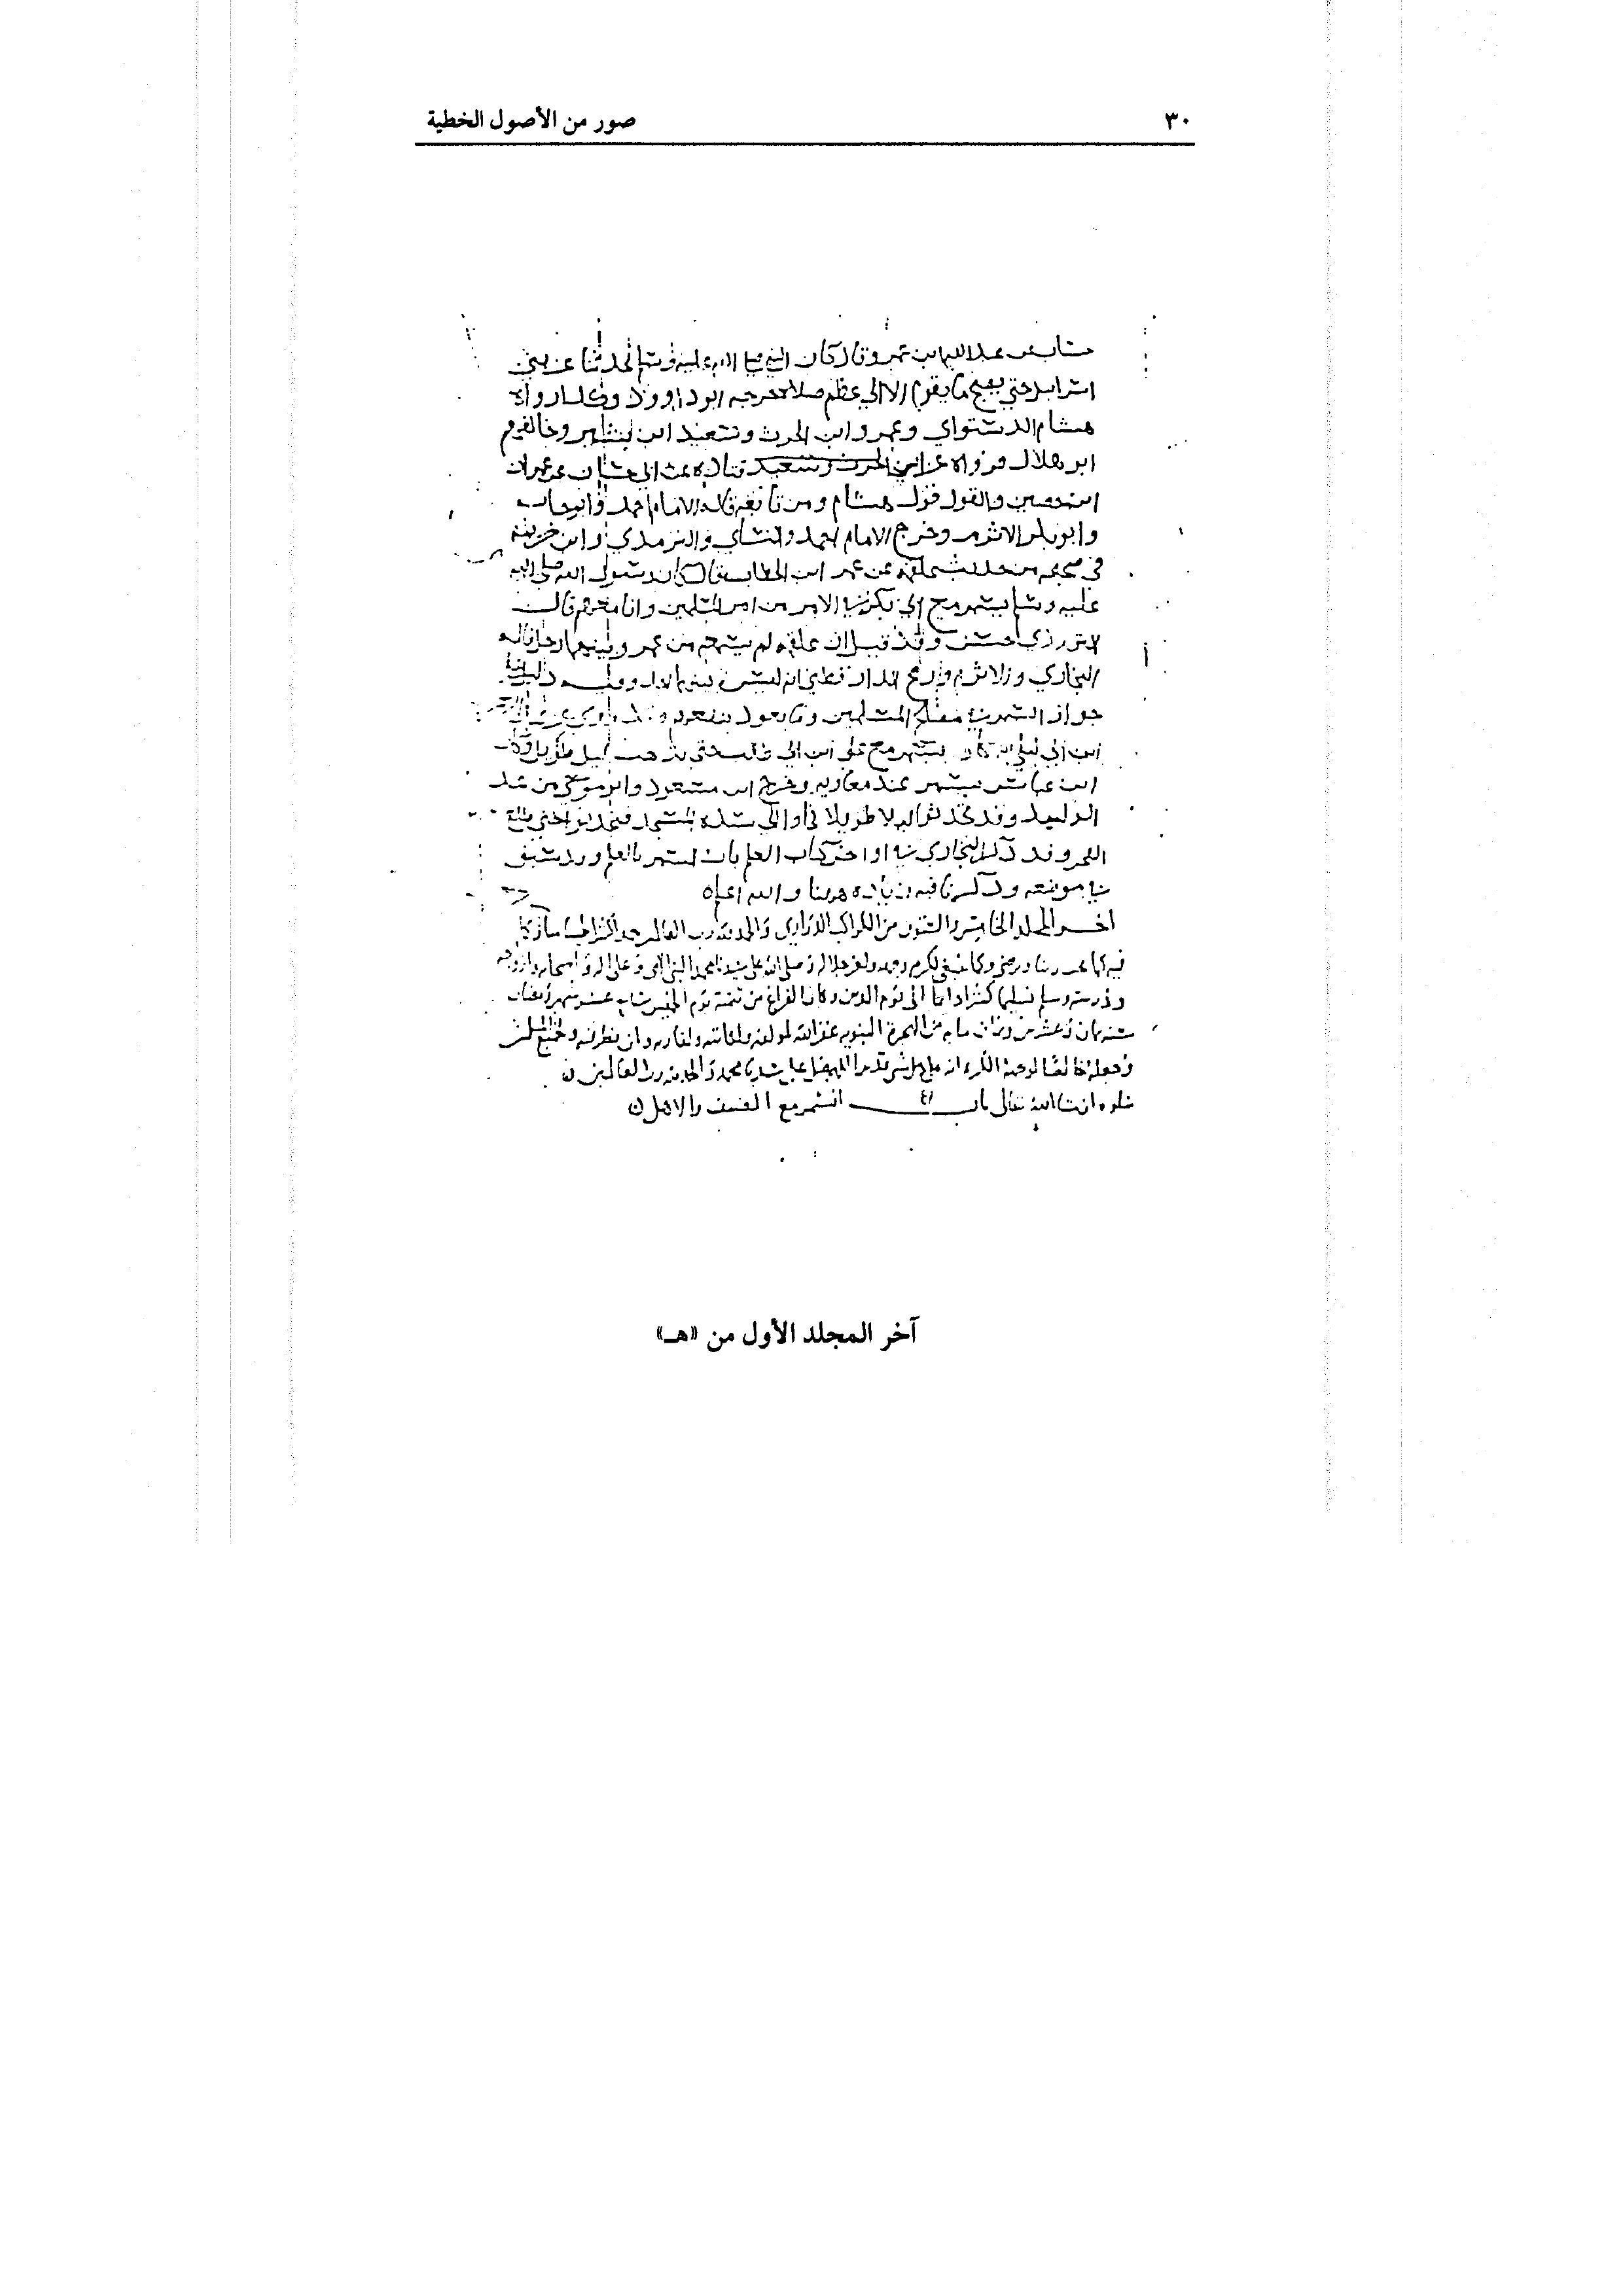 ٣٠
صور من الأصول الخطية
عبد الله ابن عمرو قال كان النبي صلى الله عليه وسلم يحدثنا عن بني
اسرائيل حتى يصبح ما يقوم الا الى عظم صلاة خرجه ابو داوود وكذا رواه
هشام الدستواي وعمرو ابن الحرث وسعيد ابن بشير وخالفهم
ابو هلال فرواه عن قتاده عن ابي حسان عن عمران
ابن حصين والقول قول هشام ومن تابعه قاله الامام احمد وابو حاتم
وابو بكر الاثرم وخرج الامام احمد والنساي والترمذي وابن خزيمه
في صحيحه من حديث علقمه عن عمر ابن الخطاب قال كان رسول الله صلى الله
عليه وسلم يسهر مع ابي بكر في الامر من امر المسلمين وانا معهم قال
الترمذي حسن وقد قيل ان علقمه لم يسمعه من عمر وبينهما رجل قاله
البخاري والاثرم ورجح الدار قطني انه ليس بينهما
جواز السهر في مصالح المسلمين وما يعود بنفعهم وقد روي عن
ابن ابي ليلى يسهر مع علي ابن ابي طالب حتى يذهب ليل طويل وكان
ابن عباس يسهر عند معاويه وخرج ابن مسعود وابو موسى من عند
الوليد وقد تحدثوا ليلا طويلا فاتوا الى سده المسجد فتحدثوا حتى طلع
الفجر وقد ذكر البخاري في اواخر كتاب العلم باب السهر بالعلم وقد سبق
في موضعه وذكرنا فيه زياده هاهنا والله اعلم
اخر المجلد الخامس والستون من الكواكب الدراري والحمد لله رب العالمين حمدا كثيرا طيبا مباركا
فيه كما يحب ربنا ويرضى وكما ينبغي لكرم وجهه ولعز جلاله وصلى الله على سيدنا محمد النبي الامي وعلى اله واصحابه وازواجه
وذريته وسلم تسليما كثيرا دايما الى يوم الدين وكان الفراغ من تتمته يوم الخميس عشر شهر رمضان
سنه ثمان وعشرين وثمان مايه من الهجرة النبويه غفر الله لمولفه ولكاتبه ولقاريه ولمن نظر فيه ولجميع المسلمين
وجعله خالصا لوجهه الكريم انه على كل شي قدير اللهم صل على سيدنا محمد والحمد لله رب العالمين
يتلوه ان شا الله تعالى باب السمر مع الضيف والاهل
آخر المجلد الأول من «هـ»